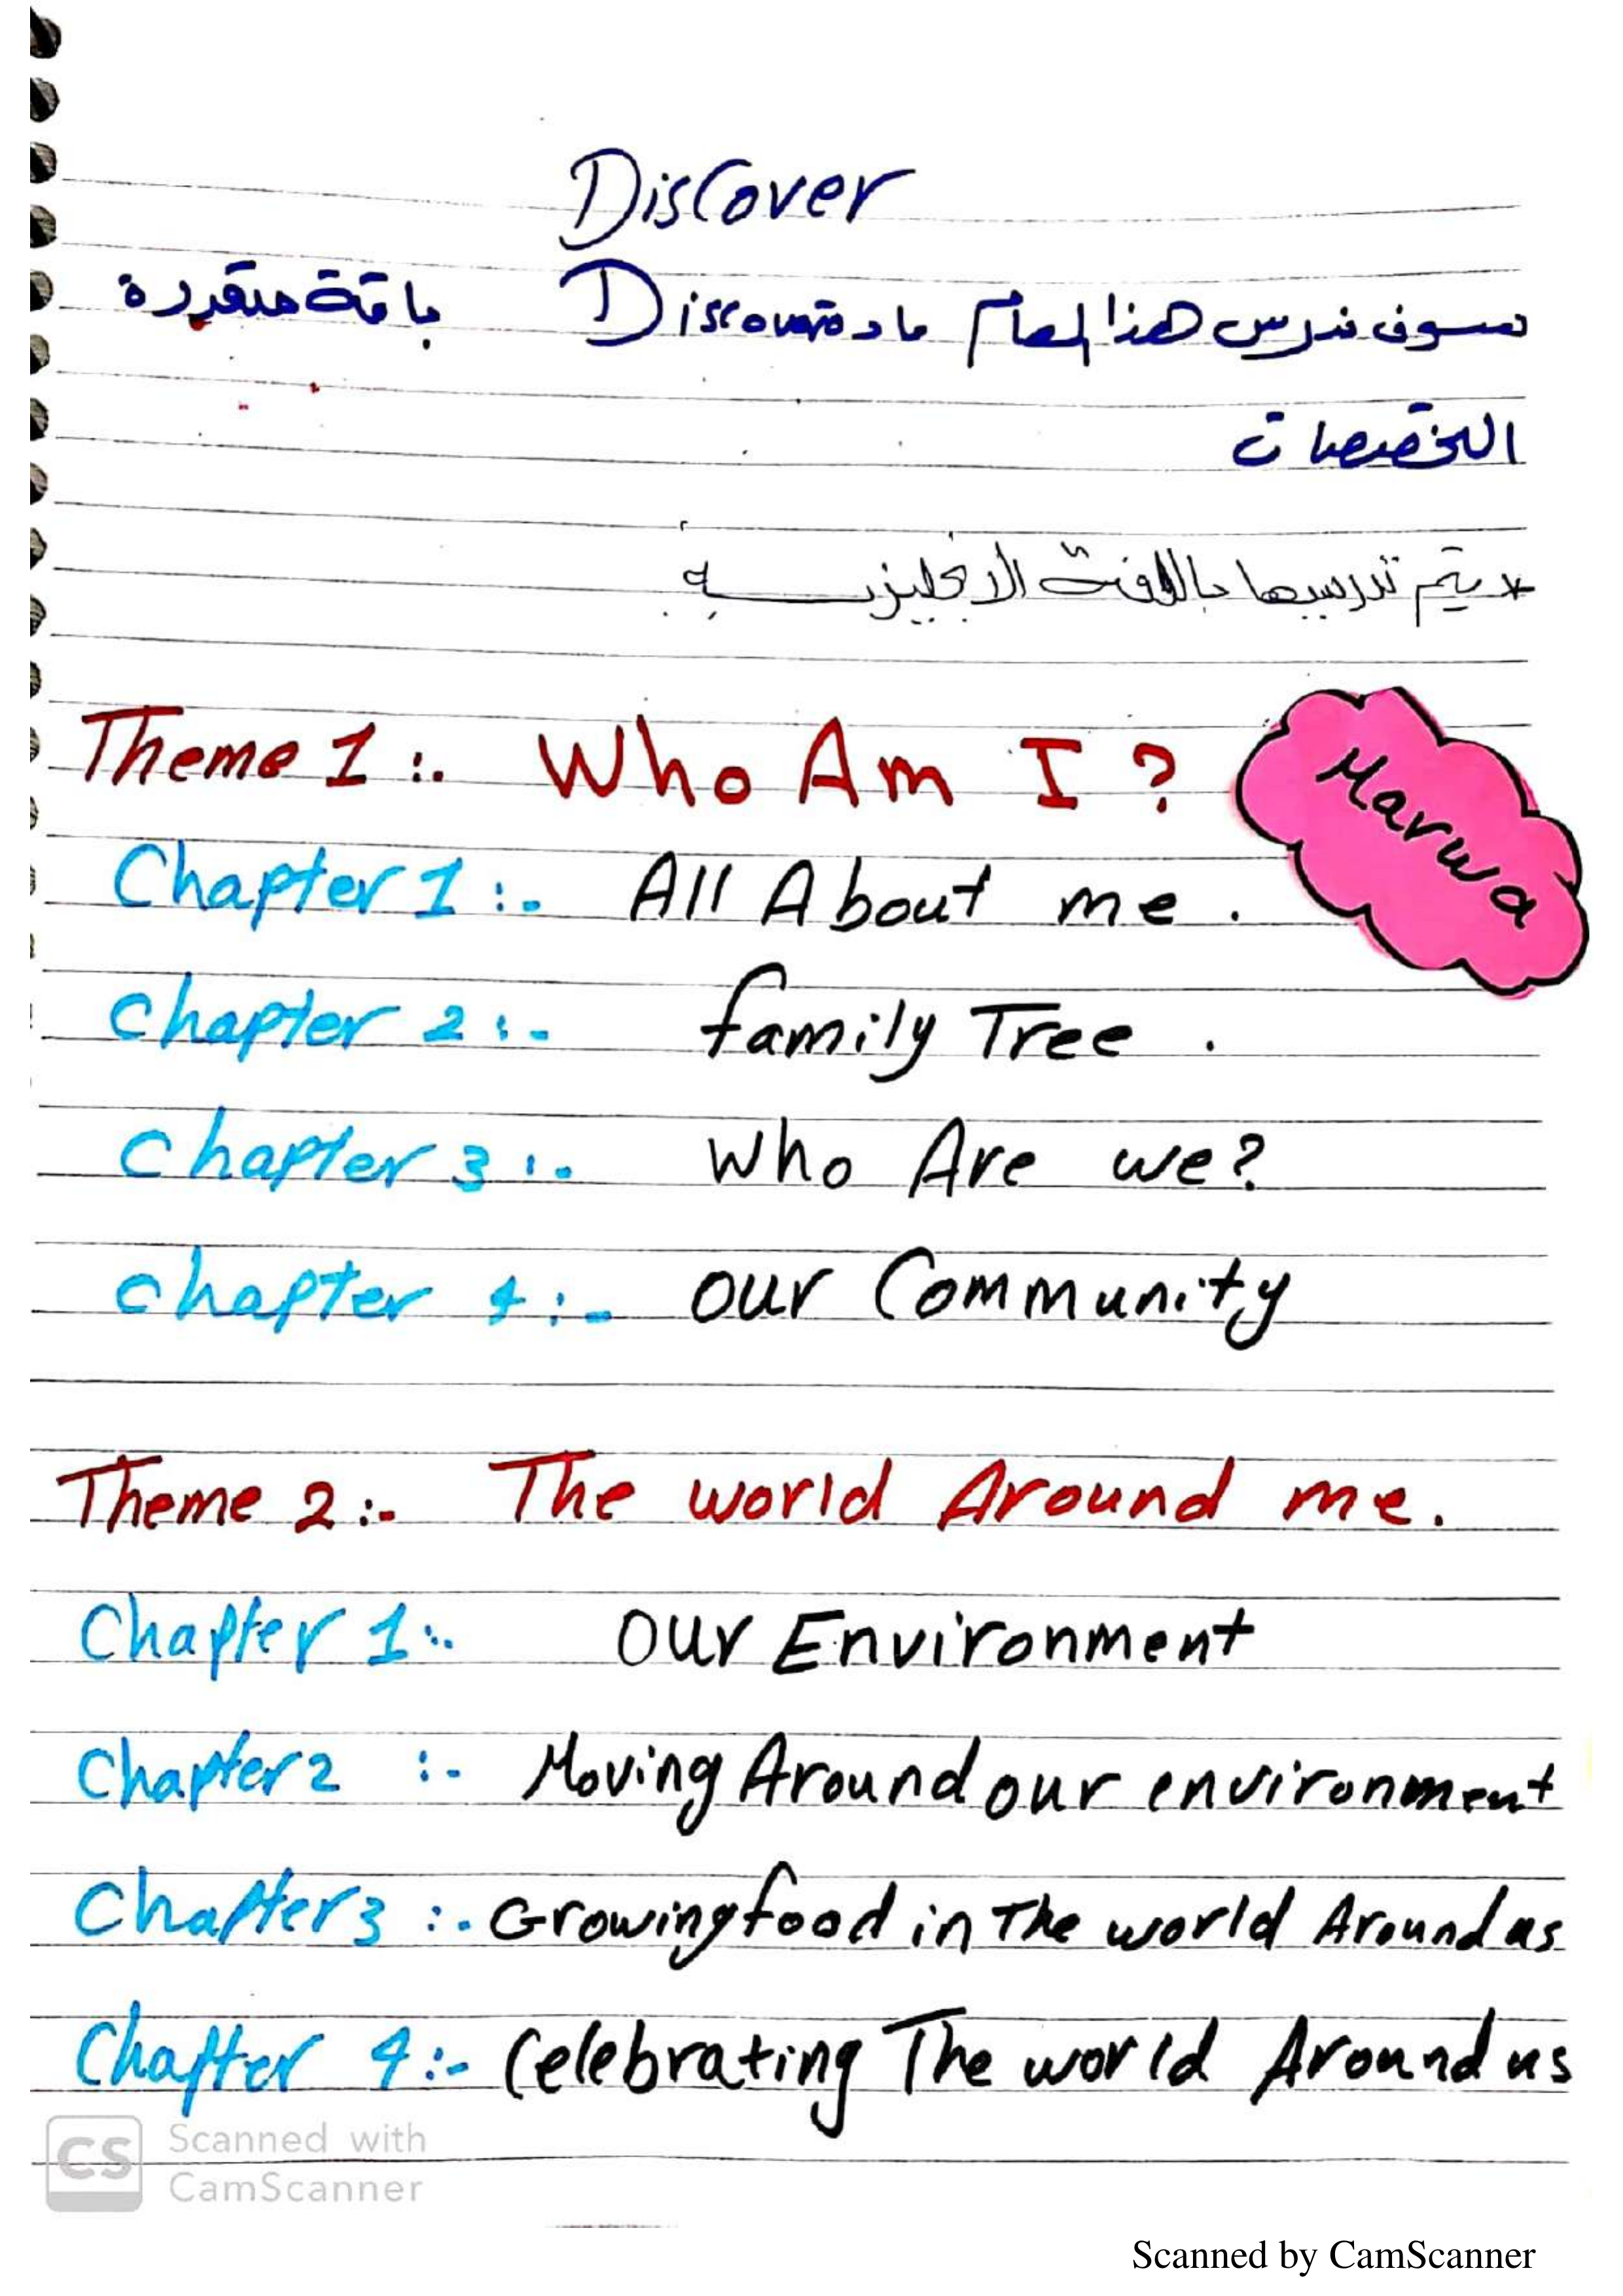 Discover
سوف ندرس هذا العام مادة Discover باقة متعددة
التخصصات
* يتم تدريسها باللغة الانجليزيه
Theme 1 :. Who Am I ?
Marwa
Chapter 1 :- All About me .
Chapter 2 :- family Tree .
Chapter 3 :- Who Are we?
Chapter 4 :- our Community
Theme 2 :- The world Around me.
Chapter 1 :. Our Environment
Chapter 2 :- Moving Around our environment
Chapter 3 :- Growing food in The world Around us
Chapter 4 :- Celebrating The world Around us
CS Scanned with
CamScanner
Scanned by CamScanner